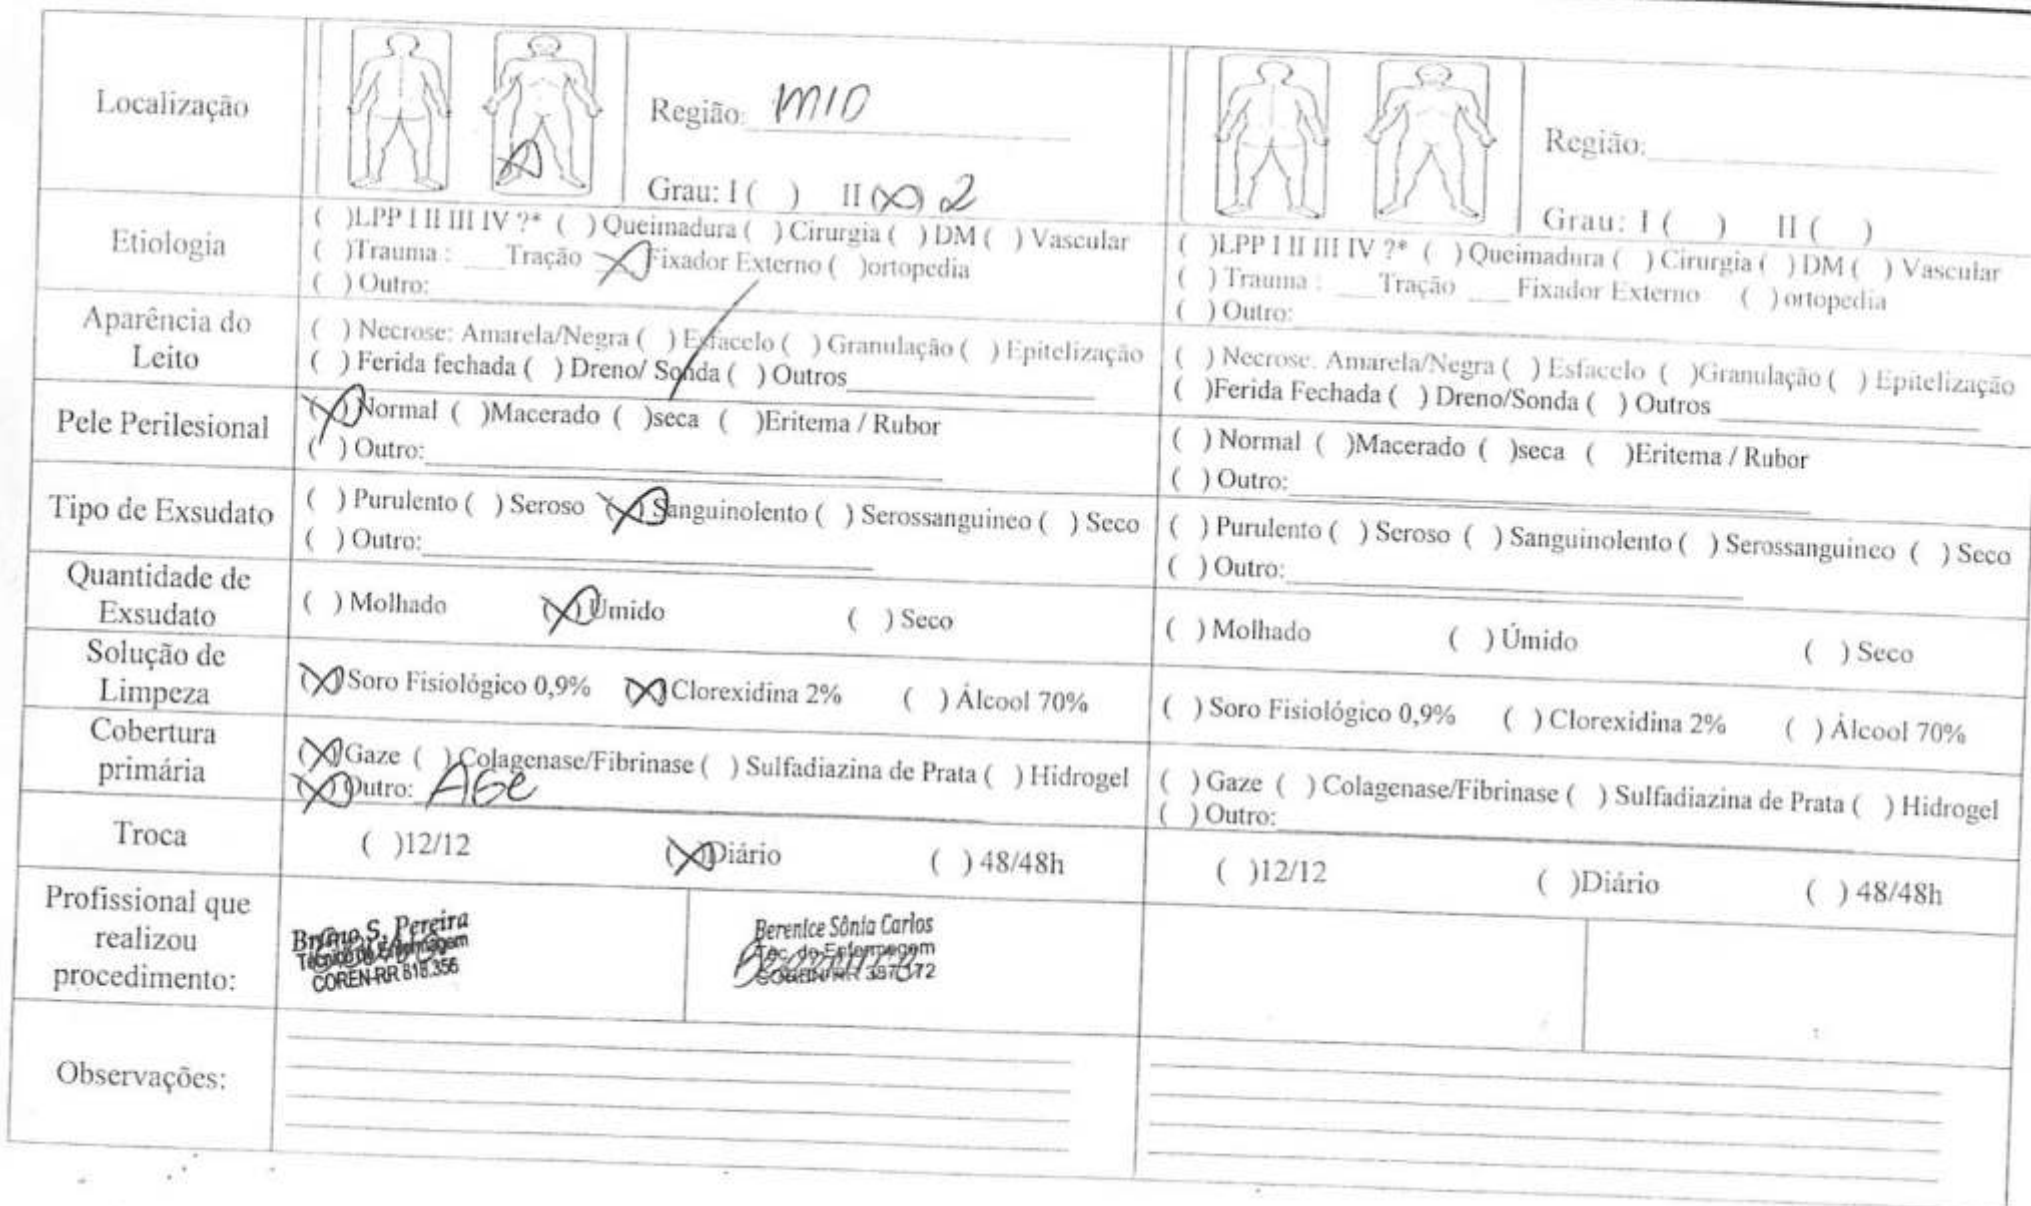 Localização
Região: MID
Grau: I ( ) II (X) 2
Região:
Grau: I ( ) II ( )
Etiologia
( )LPP I II III IV ?* ( ) Queimadura ( ) Cirurgia ( ) DM ( ) Vascular
( )Trauma : ___Tração X Fixador Externo ( )ortopedia
( ) Outro:
( )LPP I II III IV ?* ( ) Queimadura ( ) Cirurgia ( ) DM ( ) Vascular
( ) Trauma : ___Tração ___ Fixador Externo ( ) ortopedia
( ) Outro:
Aparência do
Leito
( ) Necrose: Amarela/Negra ( ) Esfacelo ( ) Granulação ( ) Epitelização
( ) Ferida fechada ( ) Dreno/ Sonda ( ) Outros
( ) Necrose. Amarela/Negra ( ) Esfacelo ( )Granulação ( ) Epitelização
( )Ferida Fechada ( ) Dreno/Sonda ( ) Outros
Pele Perilesional
(X) Normal ( )Macerado ( )seca ( )Eritema / Rubor
( ) Outro:
( ) Normal ( )Macerado ( )seca ( )Eritema / Rubor
( ) Outro:
Tipo de Exsudato
( ) Purulento ( ) Seroso (X) Sanguinolento ( ) Serossanguineo ( ) Seco
( ) Outro:
( ) Purulento ( ) Seroso ( ) Sanguinolento ( ) Serossanguineo ( ) Seco
( ) Outro:
Quantidade de
Exsudato
( ) Molhado (X) Úmido ( ) Seco
( ) Molhado ( ) Úmido ( ) Seco
Solução de
Limpeza
(X) Soro Fisiológico 0,9% (X) Clorexidina 2% ( ) Álcool 70%
( ) Soro Fisiológico 0,9% ( ) Clorexidina 2% ( ) Álcool 70%
Cobertura
primária
(X) Gaze ( ) Colagenase/Fibrinase ( ) Sulfadiazina de Prata ( ) Hidrogel
(X) Outro: AGE
( ) Gaze ( ) Colagenase/Fibrinase ( ) Sulfadiazina de Prata ( ) Hidrogel
( ) Outro:
Troca
( )12/12 (X)Diário ( ) 48/48h
( )12/12 ( )Diário ( ) 48/48h
Profissional que
realizou
procedimento:
Bruno S. Pereira
Técnico de Enfermagem
COREN-RR 818.356
Berenice Sônia Carlos
Téc. de Enfermagem
COREN/RR
Observações: